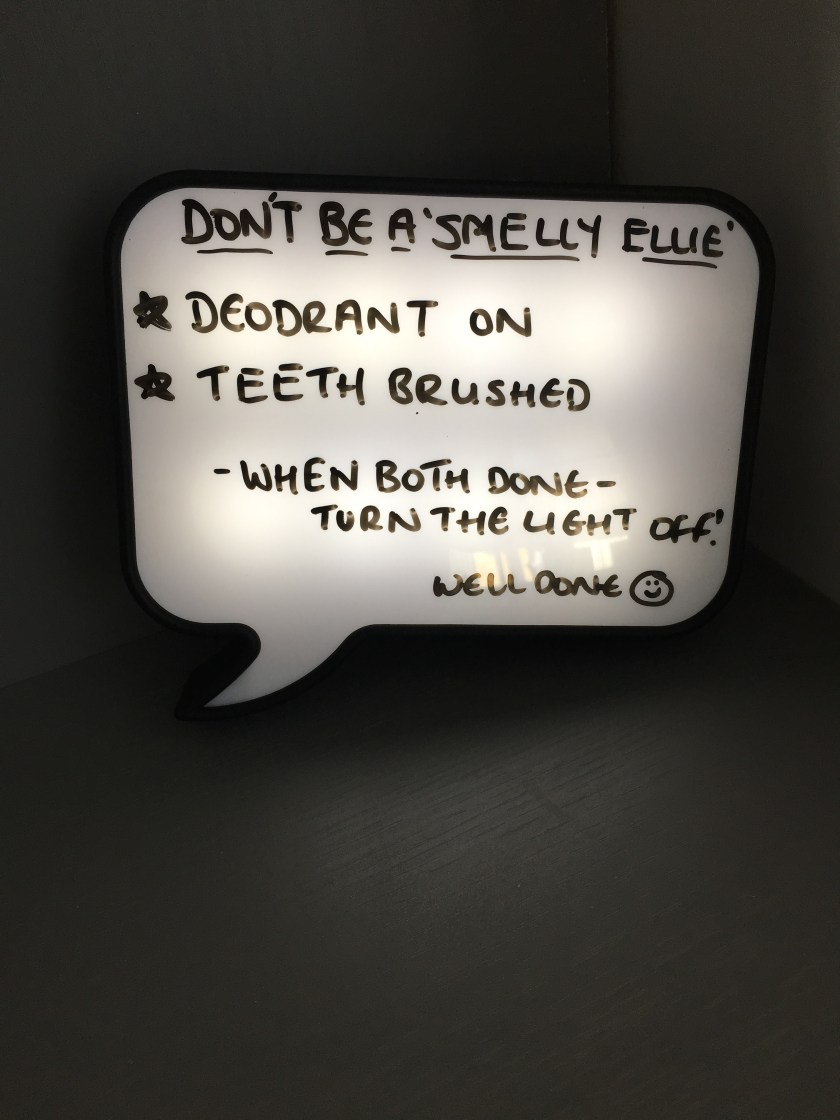 DON'T BE A 'SMELLY ELLIE'
★ DEODRANT ON
★ TEETH BRUSHED
- WHEN BOTH DONE -
TURN THE LIGHT OFF!
WELL DONE ☺